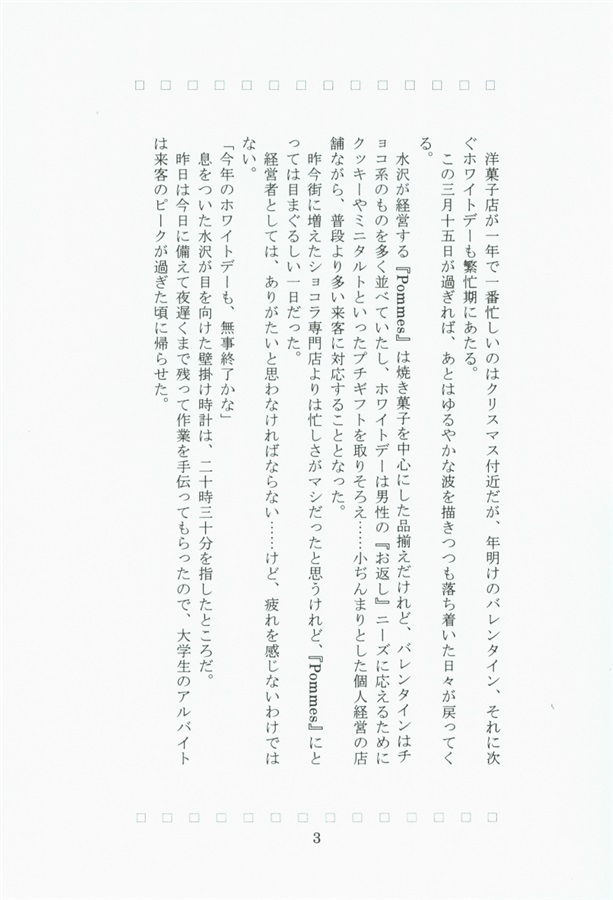 洋菓子店が一年で一番忙しいのはクリスマス付近だが、年明けのバレンタイン、それに次
ぐホワイトデーも繁忙期にあたる。
この三月十五日が過ぎれば、あとはゆるやかな波を描きつつも落ち着いた日々が戻ってく
る。
水沢が経営する『Pommes』は焼き菓子を中心にした品揃えだけれど、バレンタインはチ
ョコ系のものを多く並べていたし、ホワイトデーは男性の『お返し』ニーズに応えるために
クッキーやミニタルトといったプチギフトを取りそろえ……小ぢんまりとした個人経営の店
舗ながら、普段より多い来客に対応することとなった。
昨今街に増えたショコラ専門店よりは忙しさがマシだったと思うけれど、『Pommes』にと
っては目まぐるしい一日だった。
経営者としては、ありがたいと思わなければならない……けど、疲れを感じないわけでは
ない。
「今年のホワイトデーも、無事終了かな」
息をついた水沢が目を向けた壁掛け時計は、二十時三十分を指したところだ。
昨日は今日に備えて夜遅くまで残って作業を手伝ってもらったので、大学生のアルバイト
は来客のピークが過ぎた頃に帰らせた。
3